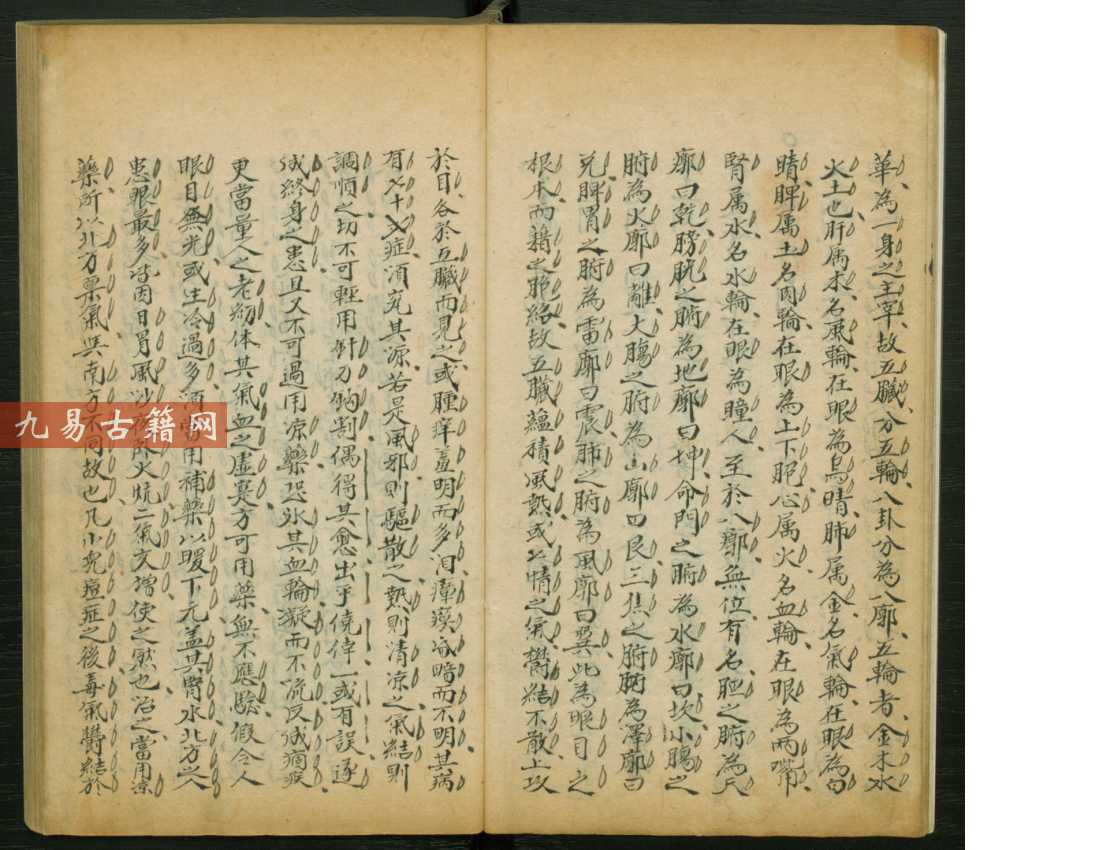 華為一身之主宰故五臟分五輪八卦分為八廓五輪者金木水
火土也肝属木名風輪在眼為烏睛肺属金名氣輪在眼為白
睛脾属土名肉輪在眼為上下胞心属火名血輪在眼為兩眥
腎属水名水輪在眼為瞳人至於八廓無位有名胆之腑為天
廓曰乾膀胱之腑為地廓曰坤命門之腑為水廓曰坎小腸之
腑為火廓曰離大腸之腑為山廓曰艮三焦之腑為澤廓曰
兌脾胃之腑為雷廓曰震肺之腑為風廓曰巽此為眼目之
根本而藉之胞絡故五臟蘊積風熱或七情之氣鬱結不散上攻
於目各於五臟而見之或腫痒羞明而多泪瘴瘼昏暗而不明其病
有七十二症須究其源若是風邪則驅散之熱則清凉之氣結則
調順之切不可輕用針刀鈎割偶得其愈出乎僥倖一或有誤遂
成終身之患且又不可過用凉藥恐氷其血輪凝而不流反成痼疾
更當量人之老幼体其氣血之虛實方可用藥無不應驗假令人
眼目無光或生冷過多須當用補藥以暖下元盖其腎水北方之人
患眼最多皆因日冒風沙夜卧火炕二氣交增使之然也治之當用凉
藥所以北方禀氣與南方不同故也凡小兒痘症之後毒氣鬱結於
九易古籍网